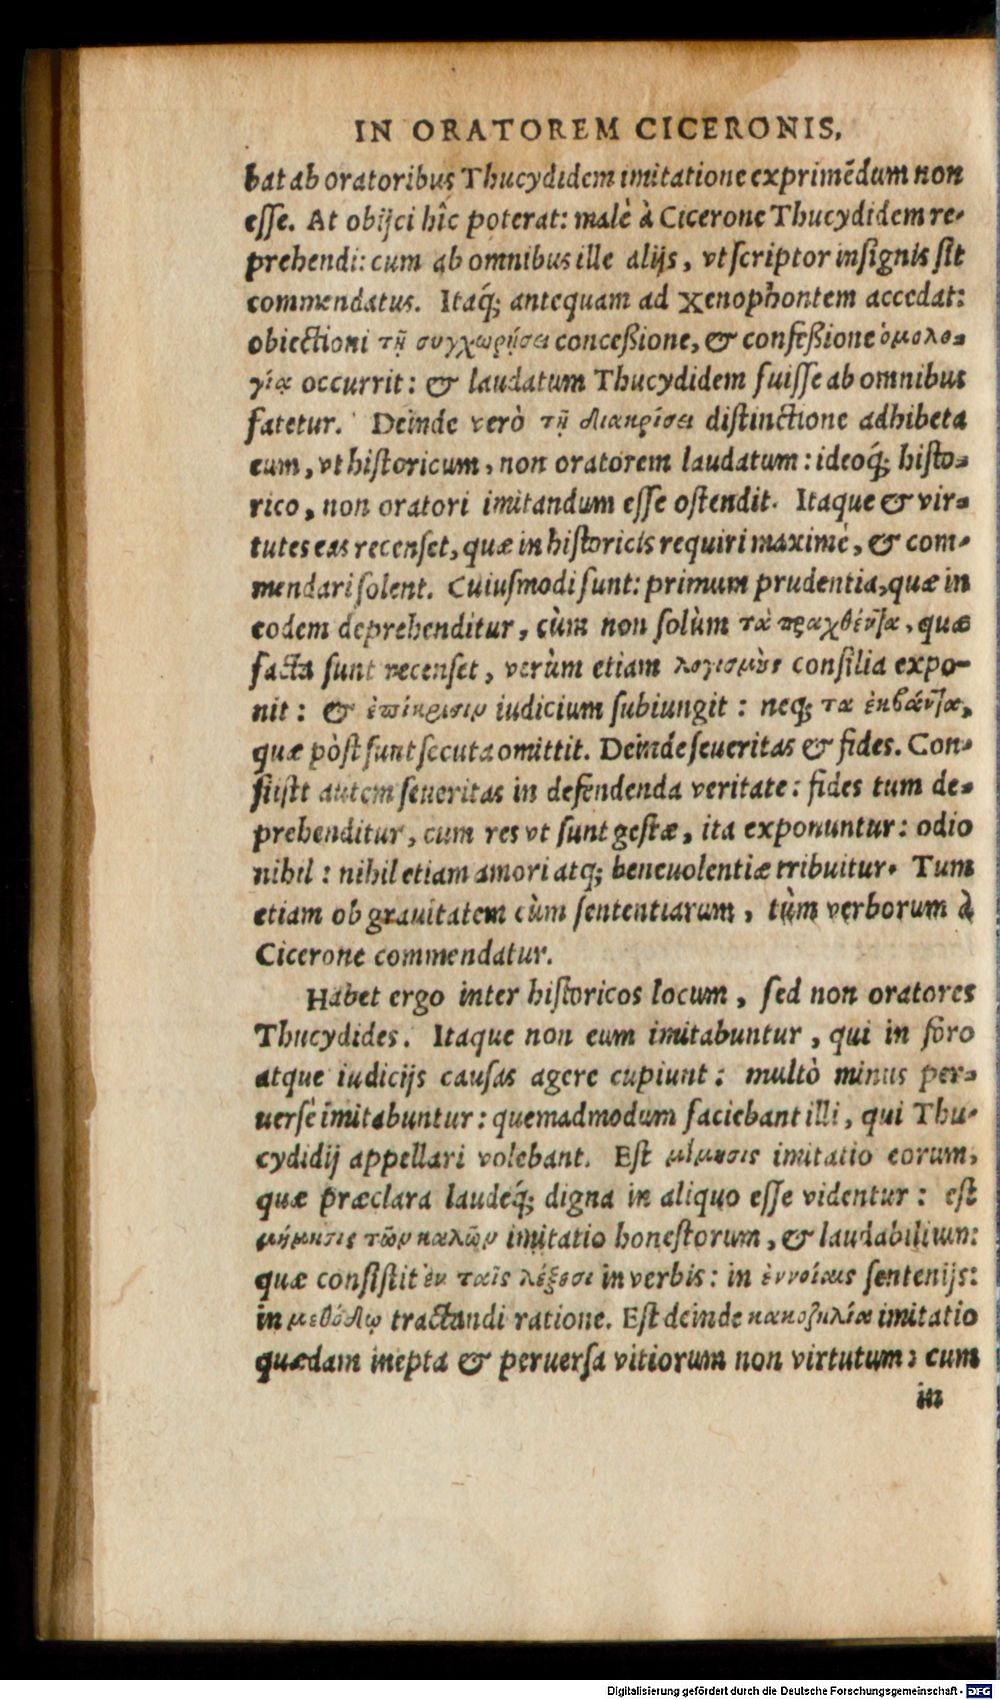 IN ORATOREM CICERONIS,
bat ab oratoribus Thucydidem imitatione exprimēdum non
eſſe. At obijci hîc poterat: malè à Cicerone Thucydidem re-
prehendi: cum ab omnibus ille alijs, vt ſcriptor inſignis ſit
commendatus. Itaq́; antequam ad Xenophontem accedat:
obiectioni τῇ συγχωρήσει conceßione, & confeßione ὁμολο-
γίᾳ occurrit: & laudatum Thucydidem fuiſſe ab omnibus
fatetur. Deinde verò τῇ διακρίσει diſtinctione adhibeta
eum, vt hiſtoricum, non oratorem laudatum: ideoq́; hiſto-
rico, non oratori imitandum eſſe oſtendit. Itaque & vir-
tutes eas recenſet, quæ in hiſtoricis requiri maximè, & com-
mendari ſolent. Cuiuſmodi ſunt: primum prudentia, quæ in
eodem deprehenditur, cùm non ſolùm τὰ πραχθέντα, quæ
facta ſunt recenſet, verùm etiam λογισμοὺς conſilia expo-
nit: & ἐπίκρισιν iudicium ſubiungit: neq; τα ἐκβάντα,
quæ pòſt ſunt ſecuta omittit. Deinde ſeueritas & fides. Con-
ſiſtit autem ſeueritas in defendenda veritate: fides tum de-
prehenditur, cum res vt ſunt geſtæ, ita exponuntur: odio
nihil: nihil etiam amori atq; beneuolentiæ tribuitur. Tum
etiam ob grauitatem cùm ſententiarum, tùm verborum à
Cicerone commendatur.
Habet ergo inter hiſtoricos locum, ſed non oratores
Thucydides. Itaque non eum imitabuntur, qui in foro
atque iudicijs cauſas agere cupiunt: multò minus per-
uerſè imitabuntur: quemadmodum faciebant illi, qui Thu-
cydidij appellari volebant. Eſt μίμησις imitatio eorum,
quæ præclara laudeq́; digna in aliquo eſſe videntur: eſt
μήμησις τῶν καλῶν imitatio honeſtorum, & laudabilium:
quæ conſiſtit ἐν ταῖς λέξεσι in verbis: in ἐννοίαις ſentenijs:
in μεθόδῳ tractandi ratione. Eſt deinde κακοζηλία imitatio
quædam inepta & peruerſa vitiorum non virtutum: cum
in
Digitalisierung gefördert durch die Deutsche Forschungsgemeinschaft - DFG